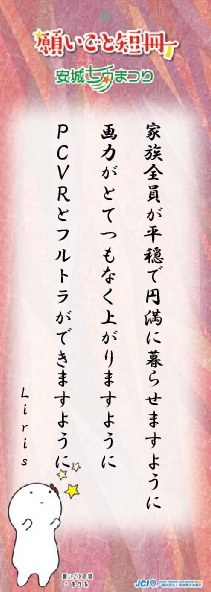 願いごと短冊
安城七夕まつり
家族全員が平穏で円満に暮らせますように
画力がとてつもなく上がりますように
PCVRとフルトラができますように
Liris
願いごと妖精
きーぼー
JCI